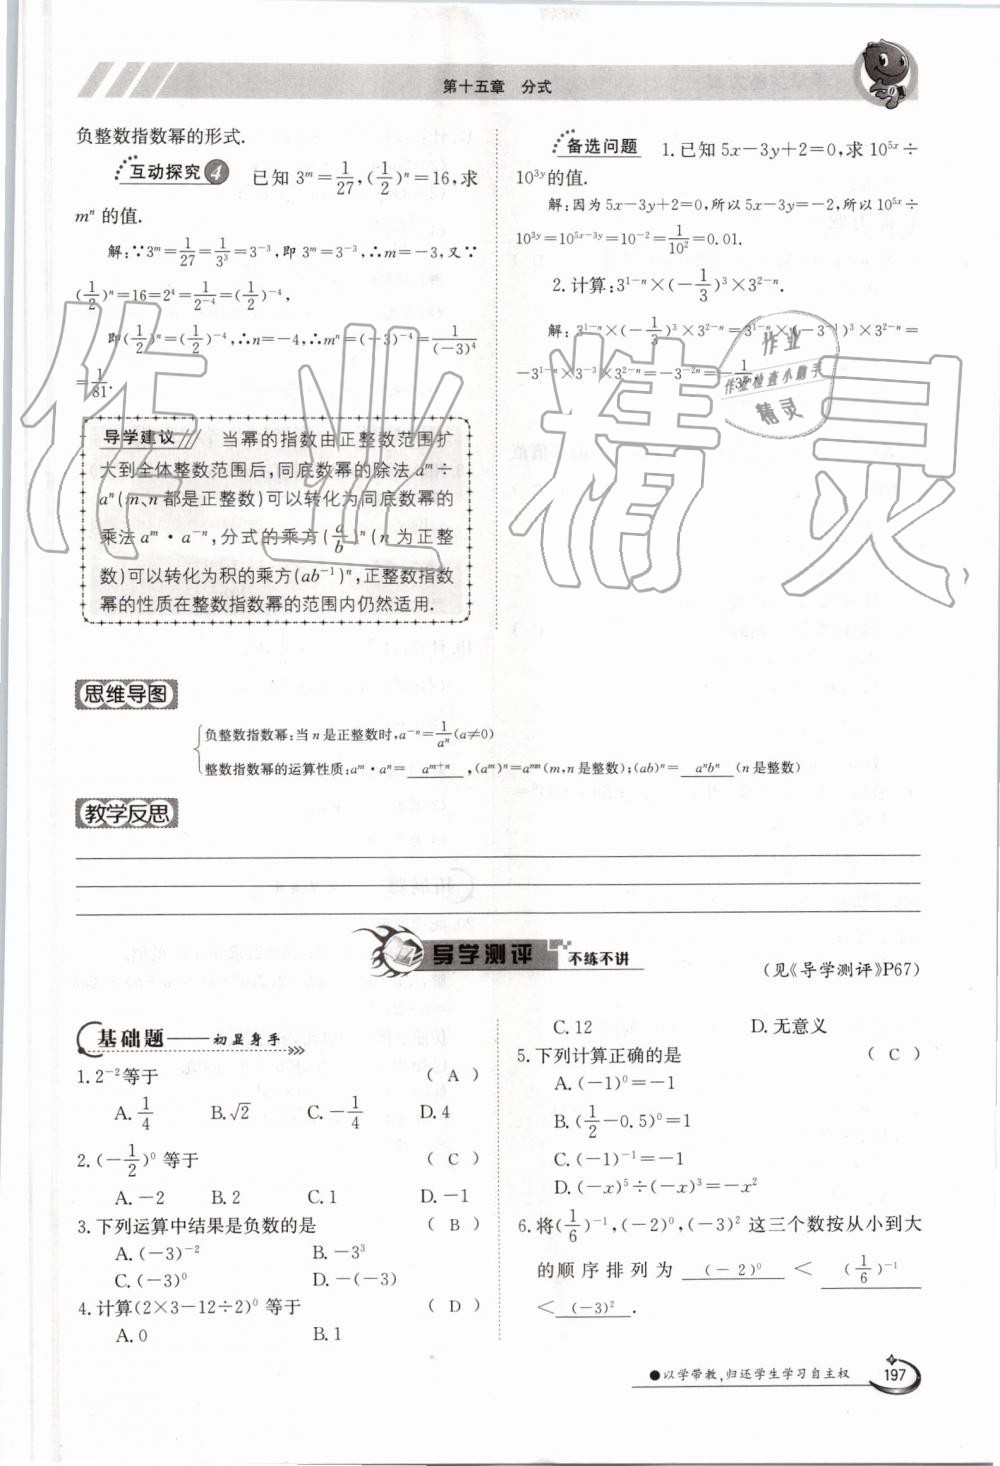 第十五章　分式
负整数指数幂的形式.
互动探究4　已知 3ᵐ=1/27,(1/2)ⁿ=16,求
mⁿ 的值.
解:∵3ᵐ=1/27=1/3³=3⁻³,即 3ᵐ=3⁻³,∴m=−3,又∵
(1/2)ⁿ=16=2⁴=1/2⁻⁴=(1/2)⁻⁴,
即(1/2)ⁿ=(1/2)⁻⁴,∴n=−4,∴mⁿ=(−3)⁻⁴=1/(−3)⁴
=1/81.
导学建议　当幂的指数由正整数范围扩
大到全体整数范围后,同底数幂的除法 aᵐ÷
aⁿ(m、n 都是正整数)可以转化为同底数幂的
乘法 aᵐ·a⁻ⁿ,分式的乘方(a/b)ⁿ(n 为正整
数)可以转化为积的乘方(ab⁻¹)ⁿ,正整数指数
幂的性质在整数指数幂的范围内仍然适用.
备选问题　1.已知 5x−3y+2=0,求 10⁵ˣ÷
10³ʸ的值.
解:因为 5x−3y+2=0,所以 5x−3y=−2,所以 10⁵ˣ÷
10³ʸ=10⁵ˣ⁻³ʸ=10⁻²=1/10²=0.01.
2.计算:3¹⁻ⁿ×(−1/3)³×3²⁻ⁿ.
解:3¹⁻ⁿ×(−1/3)³×3²⁻ⁿ=3¹⁻ⁿ×(−3⁻¹)³×3²⁻ⁿ=
−3¹⁻ⁿ×3⁻³×3²⁻ⁿ=−3⁻²ⁿ=−1/3²ⁿ.
作业精灵
作业
作业检查小助手
精灵
思维导图
负整数指数幂:当 n 是正整数时,a⁻ⁿ=1/aⁿ(a≠0)
整数指数幂的运算性质:aᵐ·aⁿ= aᵐ⁺ⁿ ,(aᵐ)ⁿ=aᵐⁿ(m,n 是整数);(ab)ⁿ= aⁿbⁿ (n 是整数)
教学反思
导学测评　不练不讲
(见《导学测评》P67)
基础题——初显身手
1.2⁻²等于　( A )
A.1/4　B.√2　C.−1/4　D.4
2.(−1/2)⁰ 等于　( C )
A.−2　B.2　C.1　D.−1
3.下列运算中结果是负数的是　( B )
A.(−3)⁻²　B.−3³
C.(−3)⁰　D.−(−3)
4.计算(2×3−12÷2)⁰ 等于　( D )
A.0　B.1
C.12　D.无意义
5.下列计算正确的是　( C )
A.(−1)⁰=−1
B.(1/2−0.5)⁰=1
C.(−1)⁻¹=−1
D.(−x)⁵÷(−x)³=−x²
6.将(1/6)⁻¹,(−2)⁰,(−3)² 这三个数按从小到大
的顺序排列为 (−2)⁰ < (1/6)⁻¹
< (−3)² .
●以学带教,归还学生学习自主权　197